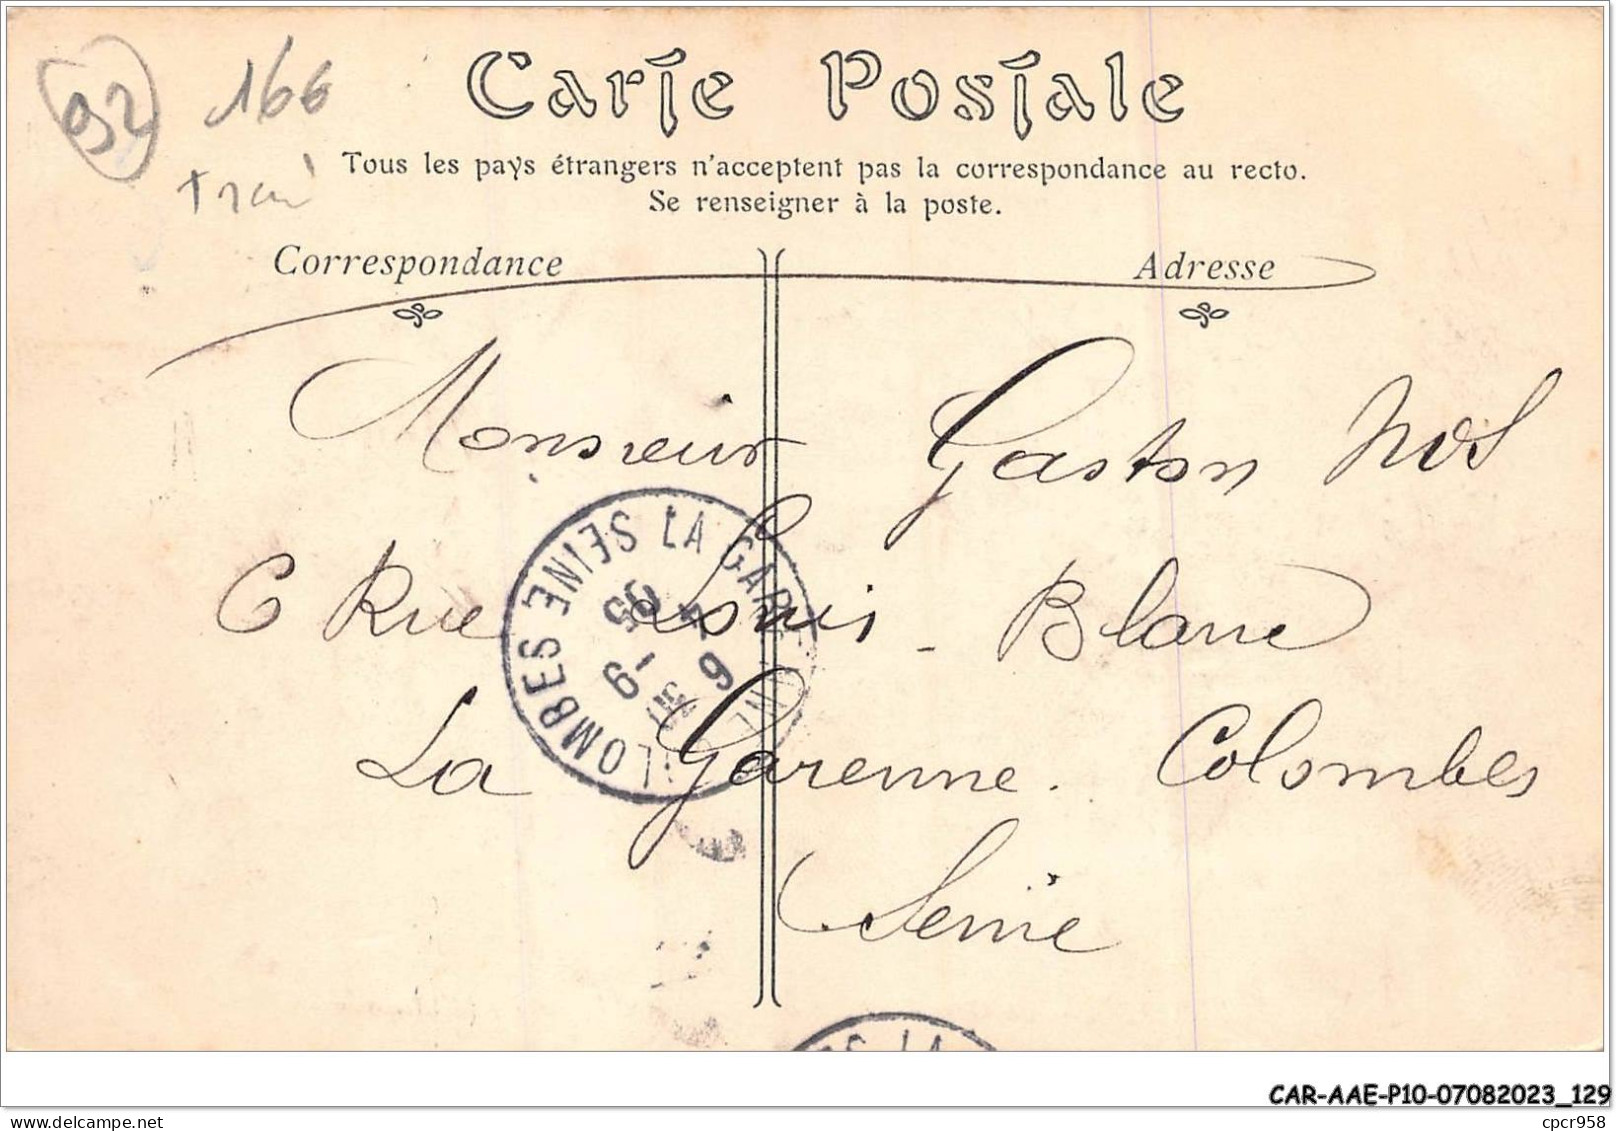 92
166
Carte Postale
Tous les pays étrangers n'acceptent pas la correspondance au recto.
Se renseigner à la poste.
Correspondance Adresse
Monsieur Gaston
6 Rue Louis Blanc
La Garenne. Colombes
Seine
LA GARENNE COLOMBES SEINE
LA
CAR-AAE-P10-07082023_129
cpcr958